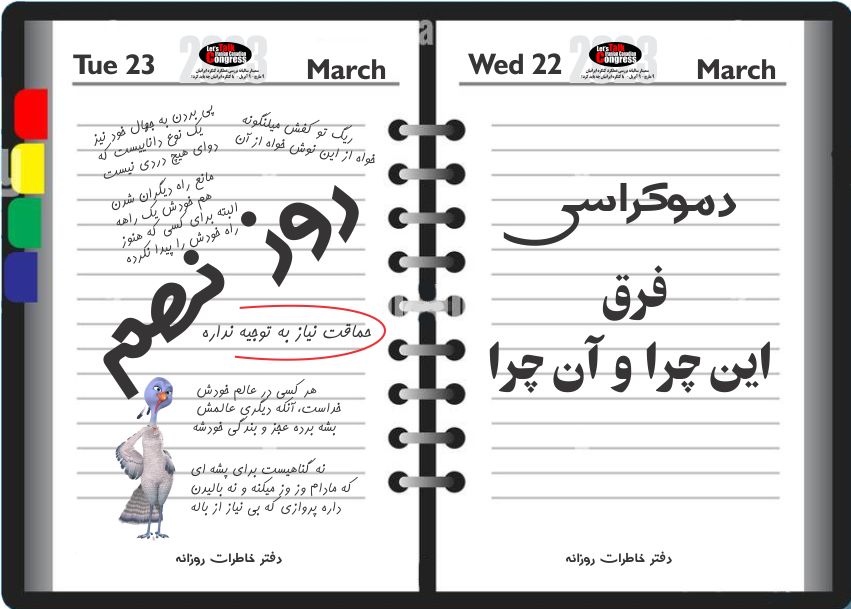 Tue 23
2023
Let's Talk
Iranian Canadian
Congress
March
پی بردن به جهال خود نیز
یک نوع داناییست که
دوای هیچ دردی نیست
ریگ تو کفش میلنگونه
خواه از این نوش خواه از آن
مانع راه دیگران شدن
هم خودش یک راهه
البته برای کسی که هنوز
راه خودش را پیدا نکرده
روز نهم
حماقت نیاز به توجیه نداره
هر کسی در عالم خودش
خداست، آنکه دیگری عالمش
بشه برده عجز و بندگی خودشه
نه گناهیست برای پشه ای
که مادام وز وز میکنه و نه بالیدن
داره پروازی که بی نیاز از باله
دفتر خاطرات روزانه
Wed 22
2023
Let's Talk
Iranian Canadian
Congress
March
دموکراسی
فرق
این چرا و آن چرا
دفتر خاطرات روزانه